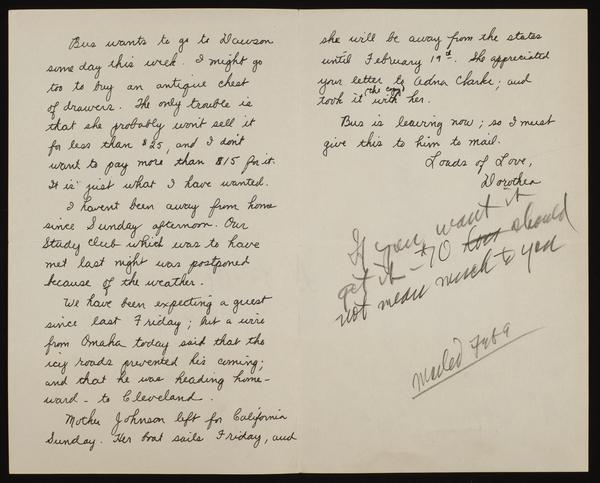 Bus wants to go to Dawson
some day this week. I might go
too to buy an antique chest
of drawers. The only trouble is
that she probably won't sell it
for less than $25, and I don't
want to pay more than $15 for it.
It is just what I have wanted.
I havent been away from home
since Sunday afternoon. Our
Study Club which was to have
met last night was postponed
because of the weather.
We have been expecting a guest
since last Friday; but a wire
from Omaha today said that the
icy roads prevented his coming;
and that he was heading home-
ward - to Cleveland.
Mother Johnson left for California
Sunday. Her boat sails Friday, and
she will be away from the states
until February 19th. She appreciated
your letter to Edna Clarke; and
took it (the copy) with her.
Bus is leaving now; so I must
give this to him to mail.
Loads of Love,
Dorothea
If you want it
get it - $10 should
not mean much to you
mailed Feb 9